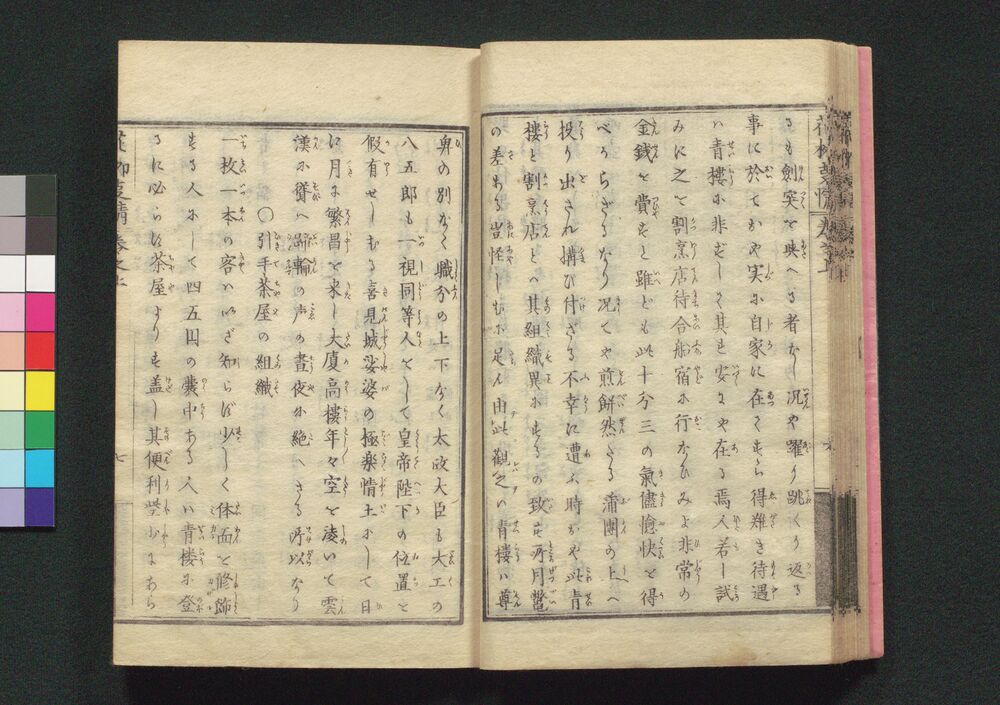 るも劍突を喰へる者なし况や躍り跳くり返る
事に於てかや実に自家に在てすら得難き待遇
は青樓に非ずして其も安にや在る焉人若し試
みに之を割烹店待合船宿に行なひみよ非常の
金銭を費すと雖ども此十分三の氣儘愉快を得
べからざるなり况てや煎餅然たる蒲團の上へ
投り出され搆ひ付ざる不幸に遭ふ時かや此青
樓と割烹店とへ其組織異にするの致す所月鼈
の差ある豈怪しむに足ん由此觀之は青樓は尊
卑の別なく職分の上下なく太政大臣も大工の
八五郎も一視同等人をして皇帝陛下の位置を
假有せしむる喜見城娑婆の極楽情土にして日
に月に繁昌を来し大廈高樓年々空を凌いて雲
漢に聳へ蹄輪の声の晝夜に絶へさる所以なり
○引手茶屋の組織
一枚一本の客はいざ知らば少しく体面を修飾
する人にして四五円の嚢中ある人は青楼に登
るに必らず茶屋よりす盖し其便利些少にあら